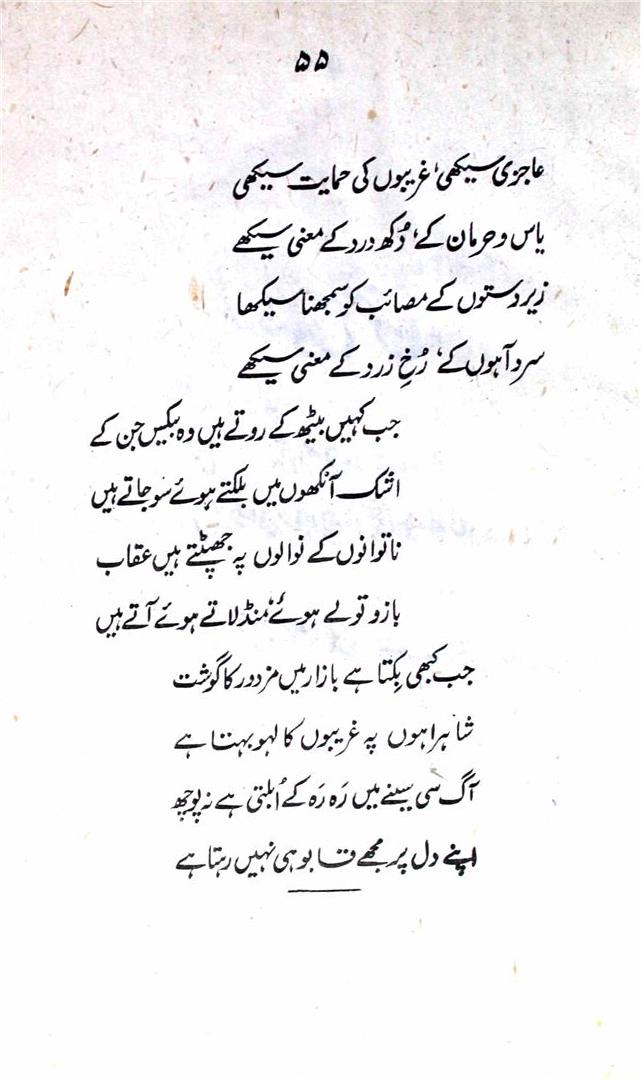 ۵۵
عاجزی سیکھی، غریبوں کی حمایت سیکھی
یاس و حرمان کے، دُکھ درد کے معنی سیکھے
زیر دستوں کے مصائب کو سمجھنا سیکھا
سرد آہوں کے، رُخِ زرد کے معنی سیکھے
جب کہیں بیٹھ کے روتے ہیں وہ بیکس جن کے
اشک آنکھوں میں بلکتے ہوئے سو جاتے ہیں
ناتوانوں کے نوالوں پہ جھپٹتے ہیں عقاب
بازو تولے ہوئے، منڈلاتے ہوئے آتے ہیں
جب کبھی بِکتا ہے بازار میں مزدور کا گوشت
شاہراہوں پہ غریبوں کا لہو بہتا ہے
آگ سی سینے میں رَہ رَہ کے اُبلتی ہے نہ پوچھ
اپنے دل پر مجھے قابو ہی نہیں رہتا ہے